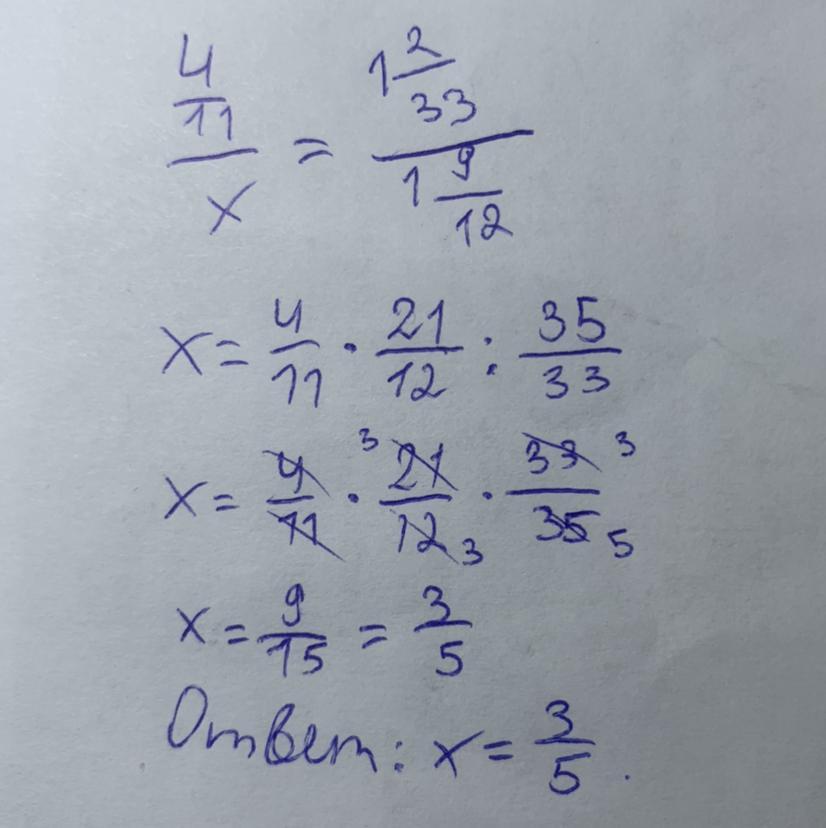 4/11 / x = 1 2/33 / 1 9/12
x = 4/11 · 21/12 : 35/33
x = 4/11 · 3 21/12 3 · 33/35 3 5
x = 9/15 = 3/5
Ответ: x = 3/5.